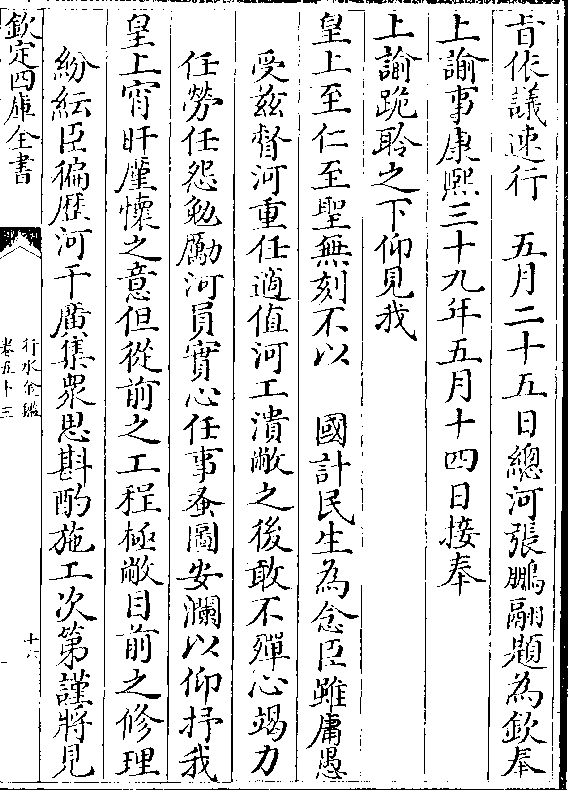 旨依議速行　五月二十五日總河張鵬翮題為欽奉
上諭事康熙三十九年五月十四日接奉
上諭跪聆之下仰見我
皇上至仁至聖無刻不以　國計民生為念臣雖庸愚
受茲督河重任適值河工潰敝之後敢不殫心竭力
任勞任怨勉勵河員實心任事蚤圖安瀾以仰抒我
皇上宵旰廑懷之意但從前之工程極敝目前之修理
紛紜臣徧歷河干廣集衆思斟酌施工次第謹將見
欽定四庫全書
行水金鑑
卷五十三
十六